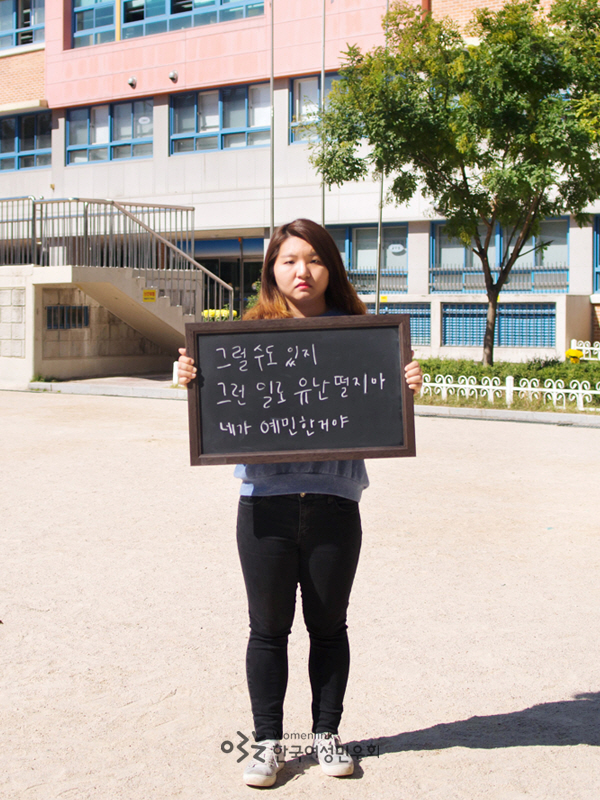 그럴 수도 있지
그런 일로 유난 떨지마
네가 예민한거야
womenlink
한국여성민우회